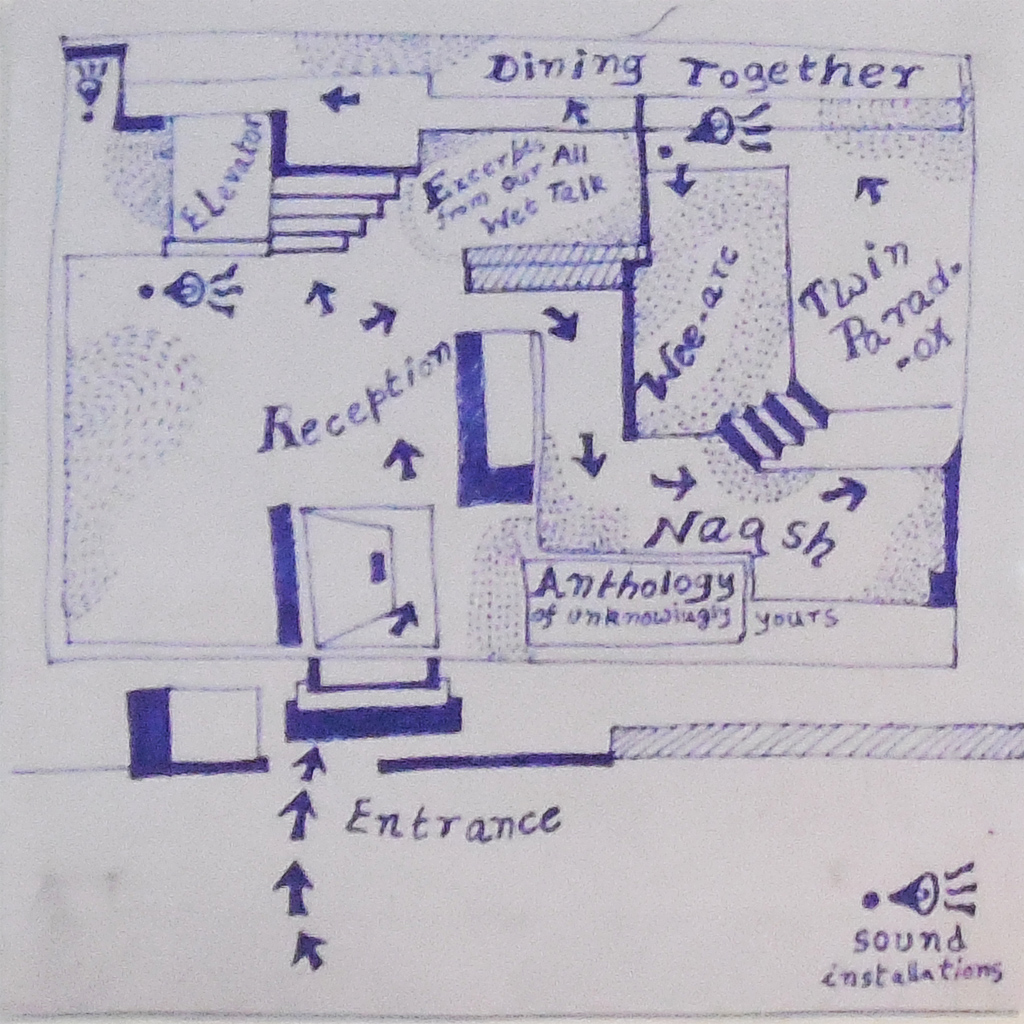 Dining Together
Elevator
Excerpts
from our All
Wet Talk
Wee-arc
Twin
Parad-
-ox
Reception
Naqsh
Anthology
of unknowingly yours
Entrance
sound
installations